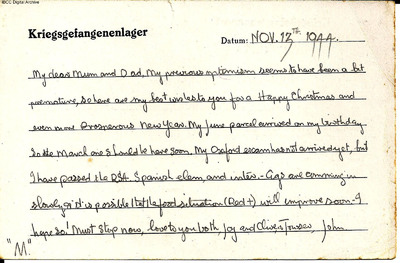 IBCC Digital Archive
Kriegsgefangenenlager
Datum: NOV. 13TH. 1944.
My dear Mum and Dad, My previous optimism seems to have been a bit
premature, so here are my best wishes to you for a Happy Christmas and
even more Prosperous New Year. My June parcel arrived on my birthday
so the March one should be here soon. My Oxford exam has not arrived yet, but
I have passed the RSA. Spanish elem, and inter. - Cigs are comming in
slowly, & it is possible that the food situation (Red +) will improve soon - I
hope so! Must stop now, love to you both, Joy and Clive, John
"M."